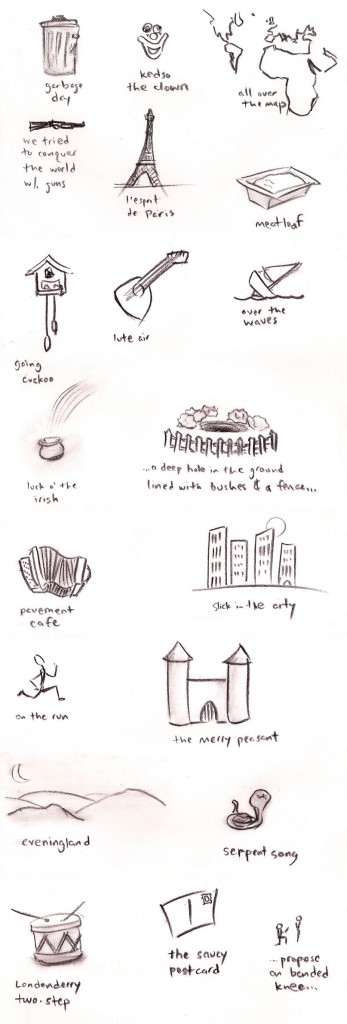 garbage
day
kedso
the clown
all over
the map
we tried
to conquer
the world
w/. guns
l'esprit
de Paris
meatloaf
going
cuckoo
lute air
over the
waves
luck o' the
irish
...a deep hole in the ground
lined with bushes & a fence...
pavement
cafe
slick in the city
on the run
the merry peasant
eveningland
serpent song
Londonderry
two-step
the saucy
postcard
...propose
on bended
knee...